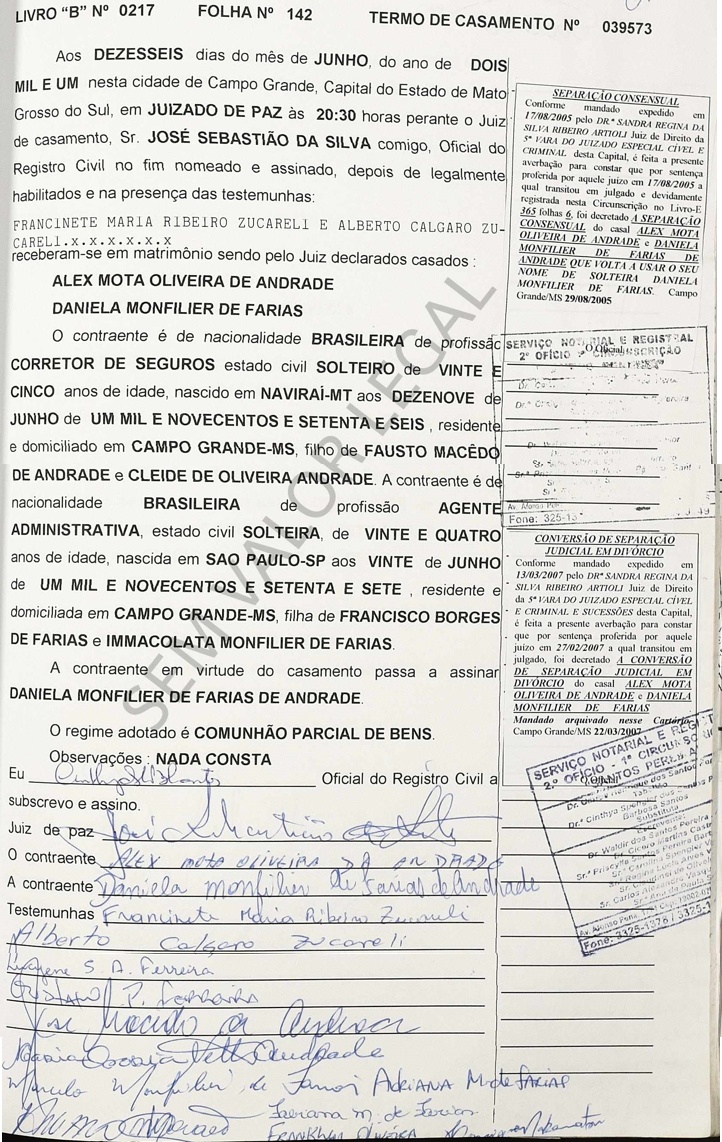 LIVRO “B” Nº 0217 FOLHA Nº 142 TERMO DE CASAMENTO Nº 039573
Aos DEZESSEIS dias do mês de JUNHO, do ano de DOIS
MIL E UM nesta cidade de Campo Grande, Capital do Estado de Mato
Grosso do Sul, em JUIZADO DE PAZ às 20:30 horas perante o Juiz
de casamento, Sr. JOSÉ SEBASTIÃO DA SILVA comigo, Oficial do
Registro Civil no fim nomeado e assinado, depois de legalmente
habilitados e na presença das testemunhas:
FRANCINETE MARIA RIBEIRO ZUCARELI E ALBERTO CALGARO ZU-
CARELI.x.x.x.x.x.x
receberam-se em matrimônio sendo pelo Juiz declarados casados :
ALEX MOTA OLIVEIRA DE ANDRADE
DANIELA MONFILIER DE FARIAS
O contraente é de nacionalidade BRASILEIRA de profissão
CORRETOR DE SEGUROS estado civil SOLTEIRO de VINTE E
CINCO anos de idade, nascido em NAVIRAÍ-MT aos DEZENOVE de
JUNHO de UM MIL E NOVECENTOS E SETENTA E SEIS , residente
e domiciliado em CAMPO GRANDE-MS, filho de FAUSTO MACÊDO
DE ANDRADE e CLEIDE DE OLIVEIRA ANDRADE. A contraente é de
nacionalidade BRASILEIRA de profissão AGENTE
ADMINISTRATIVA, estado civil SOLTEIRA, de VINTE E QUATRO
anos de idade, nascida em SAO PAULO-SP aos VINTE DE JUNHO
de UM MIL E NOVECENTOS E SETENTA E SETE , residente e
domiciliada em CAMPO GRANDE-MS, filha de FRANCISCO BORGES
DE FARIAS e IMMACOLATA MONFILIER DE FARIAS.
A contraente em virtude do casamento passa a assinar
DANIELA MONFILIER DE FARIAS DE ANDRADE.
O regime adotado é COMUNHÃO PARCIAL DE BENS.
Observações : NADA CONSTA
Eu Oficial do Registro Civil a
subscrevo e assino.
Juiz de paz José Sebastião da Silva
O contraente ALEX MOTA OLIVEIRA DE ANDRADE
A contraente Daniela monfilier de farias de andrade
Testemunhas Francinete Maria Ribeiro Zucareli
Alberto Calgaro Zucareli
S. A. Ferreira
P. Ferreira
Monfilier de ADRIANA M. de FARIAS
Fabiana m. de Farias
FRANKLYN OLIVEIRA
SEPARAÇÃO CONSENSUAL
Conforme mandado expedido em
17/08/2005 pelo DR.ª SANDRA REGINA DA
SILVA RIBEIRO ARTIOLI Juiz de Direito da
5ª VARA DO JUIZADO ESPECIAL CÍVEL E
CRIMINAL desta Capital, é feita a presente
averbação para constar que por sentença
proferida por aquele juizo em 17/08/2005 a
qual transitou em julgado e devidamente
registrada nesta Circunscrição no Livro-E
365 folhas 6, foi decretado A SEPARAÇÃO
CONSENSUAL do casal ALEX MOTA
OLIVEIRA DE ANDRADE e DANIELA
MONFILIER DE FARIAS DE
ANDRADE QUE VOLTA A USAR O SEU
NOME DE SOLTEIRA DANIELA
MONFILIER DE FARIAS. Campo
Grande/MS 29/08/2005
O Oficial
SERVIÇO NOTARIAL E REGISTRAL
2º OFÍCIO - CIRCUNSCRIÇÃO
Av. Afonso
Fone: 325-13
CONVERSÃO DE SEPARAÇÃO
JUDICIAL EM DIVÓRCIO
Conforme mandado expedido em
13/03/2007 pelo DRª SANDRA REGINA DA
SILVA RIBEIRO ARTIOLI Juiz de Direito
da 5ª VARA DO JUIZADO ESPECIAL CÍVEL
E CRIMINAL E SUCESSÕES desta Capital,
é feita a presente averbação para constar
que por sentença proferida por aquele
juizo em 27/02/2007 a qual transitou em
julgado, foi decretado A CONVERSÃO
DE SEPARAÇÃO JUDICIAL EM
DIVÓRCIO do casal ALEX MOTA
OLIVEIRA DE ANDRADE e DANIELA
MONFILIER DE FARIAS
Mandado arquivado nesse Cartório.
Campo Grande/MS 22/03/2007
SERVIÇO NOTARIAL E REGIST
2.º OFÍCIO - 1ª CIRCUNSCRI
SANTOS PEREIRA
Dr. Waldir dos Santos Pereira
Av. Afonso Pena,
Fone: 3325-1378 / 3325-1
SEM VALOR LEGAL